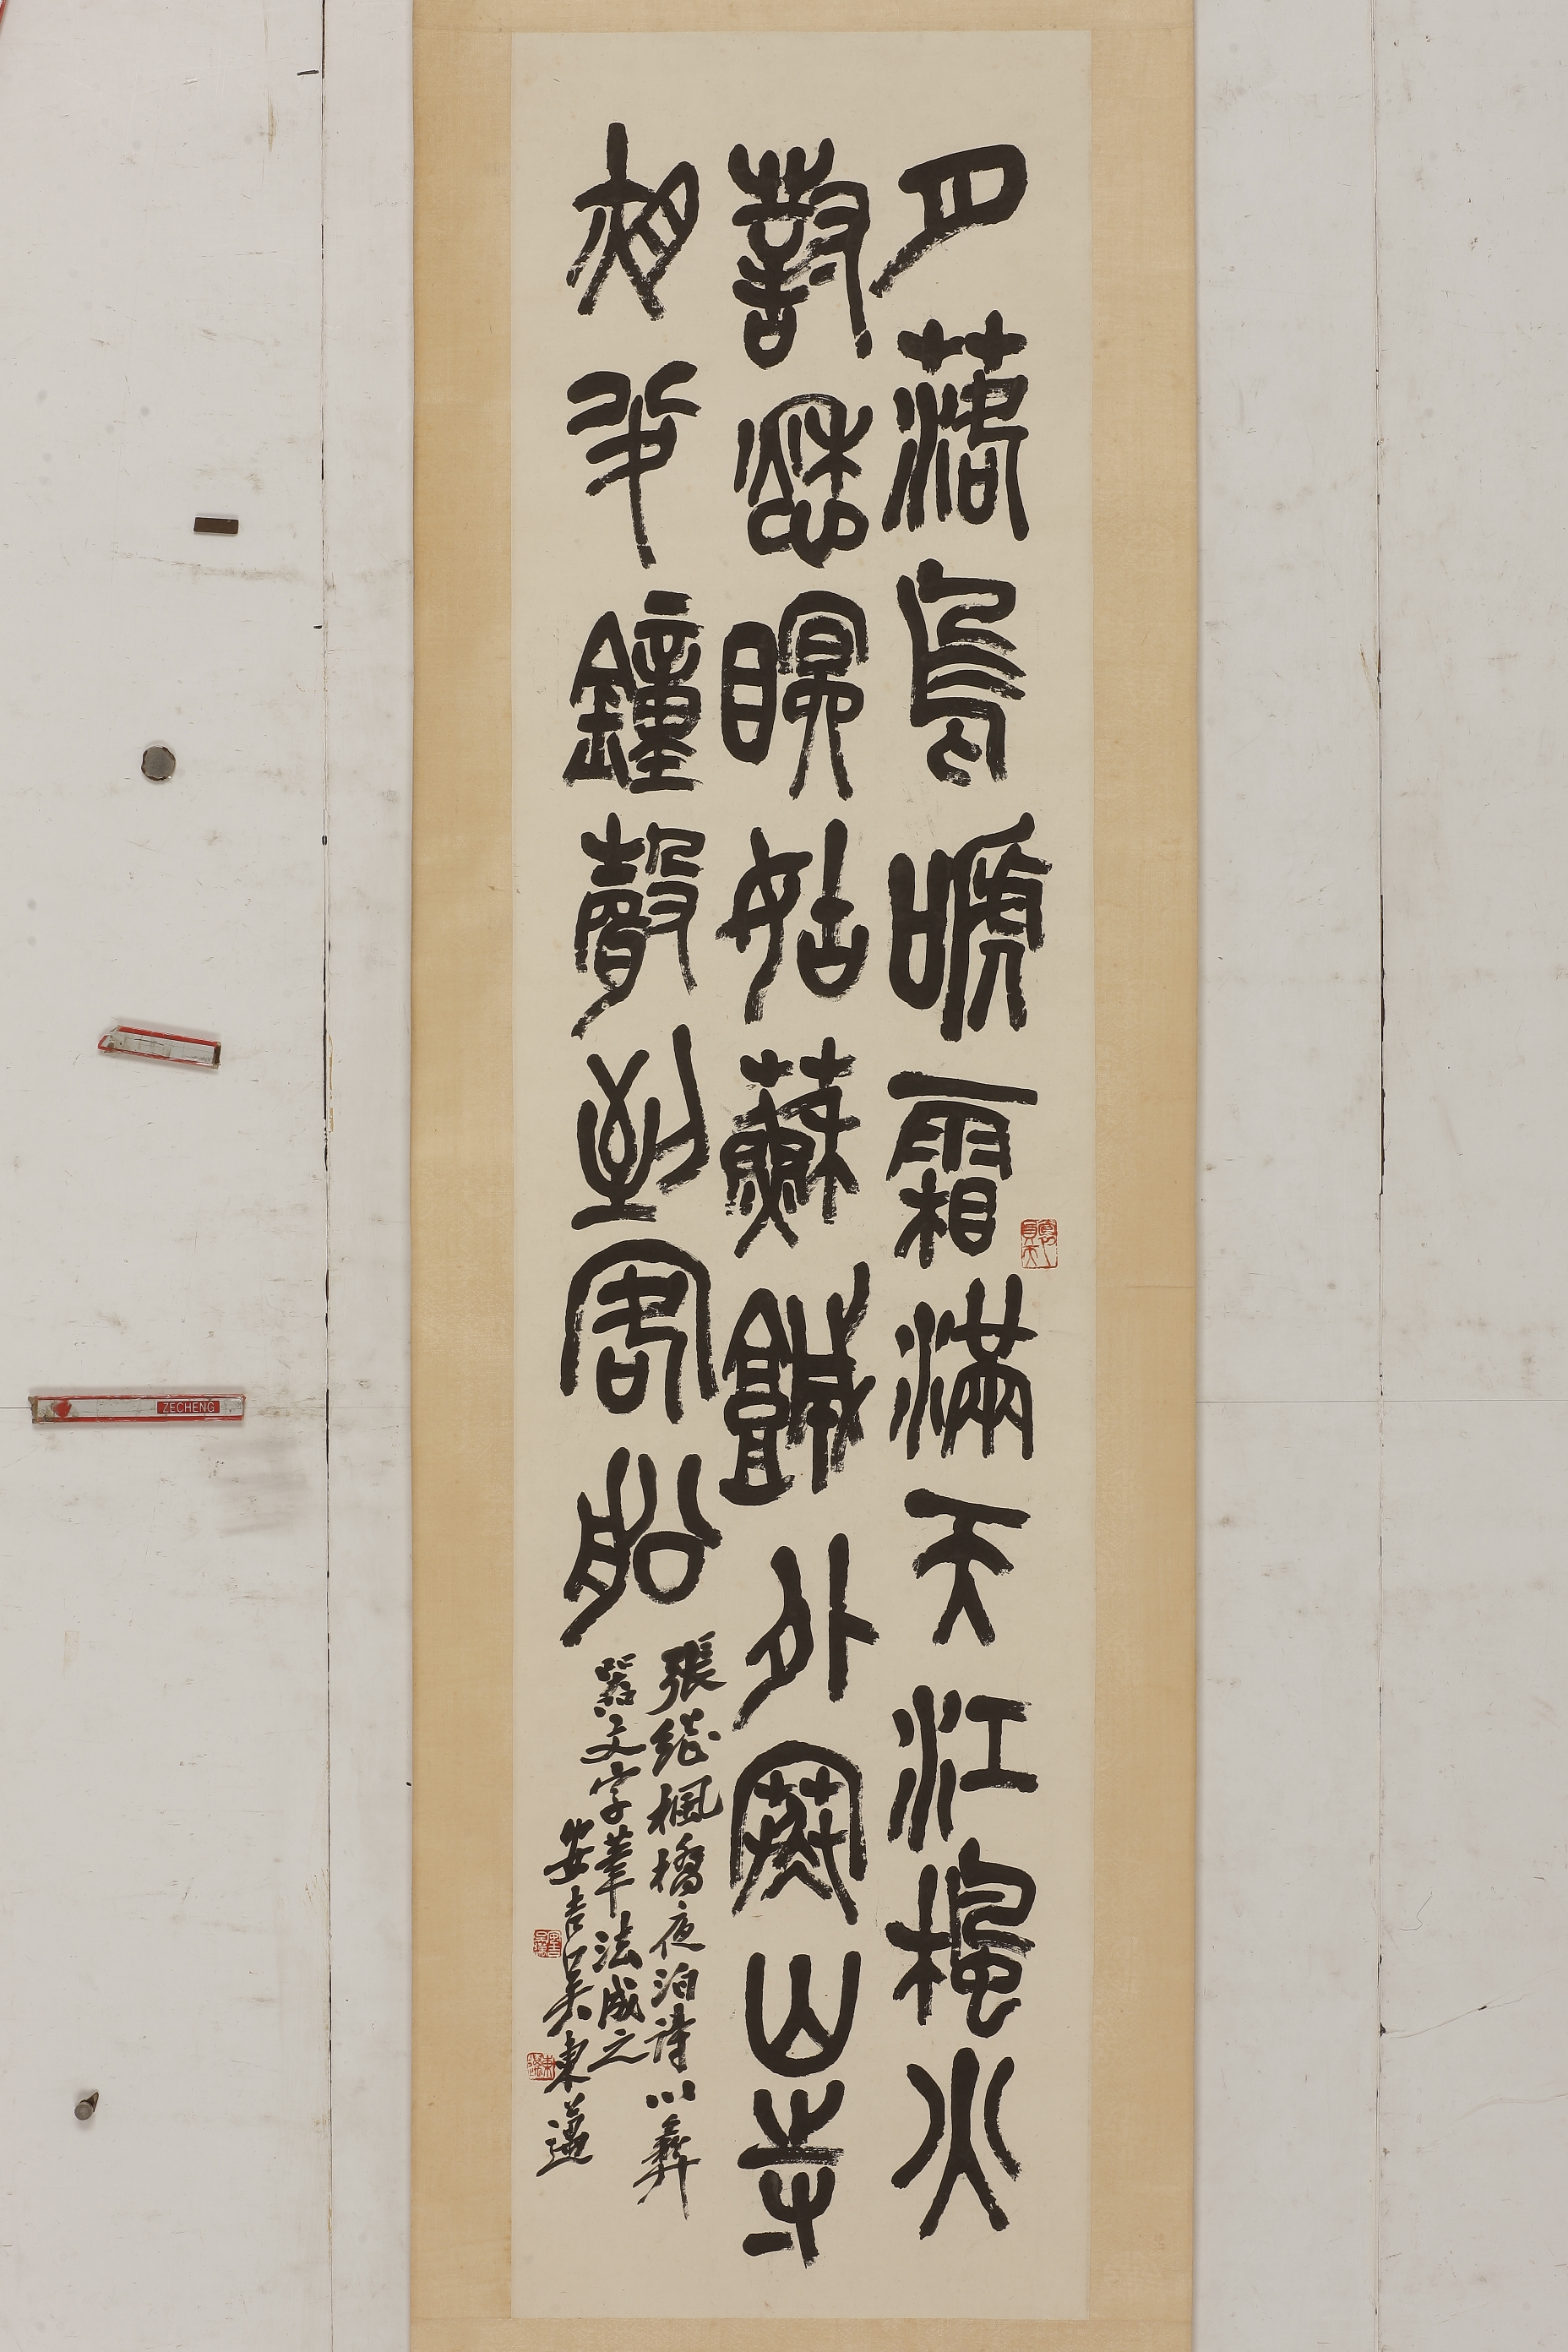 月落烏嗁霜滿天江楓火
對愁眠姑蘇鹹外寒山寺
夜半鐘聲到客船
張繼楓橋夜泊詩以彝
器文字筆法成之
安吉吳東邁
ZECHENG